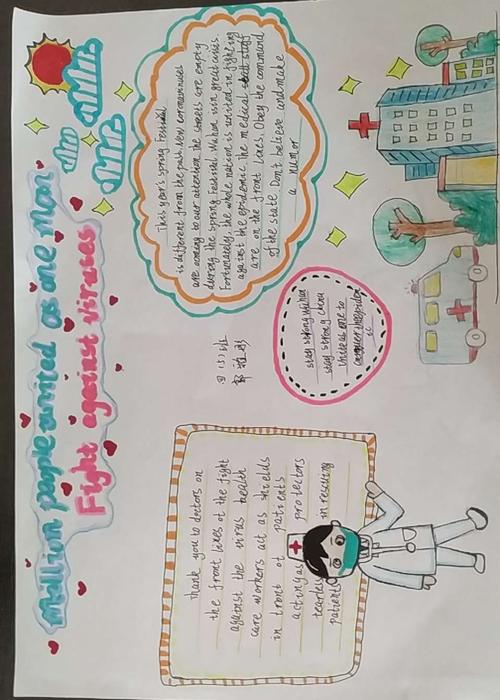 million people united as one man
Fight against viruses
Thank you to doctors on
the front lines of the fight
against the virus health
care workers act as shields
in front of patients
acting as protectors
fearless in rescuing
patient
四(5)班
stay strong wuhan
stay strong China
Unite as one to
This year's spring Festival
is different from the past. New coronaviruses
are coming to our attention, the streets are empty
during the spring Festival. Wuhan is in great crises.
Fortunately, the whole nation is united in fighting
against the epidemic, the medical staff
are on the front lines. Obey the command
of the state. Don't believe and make
a rumor